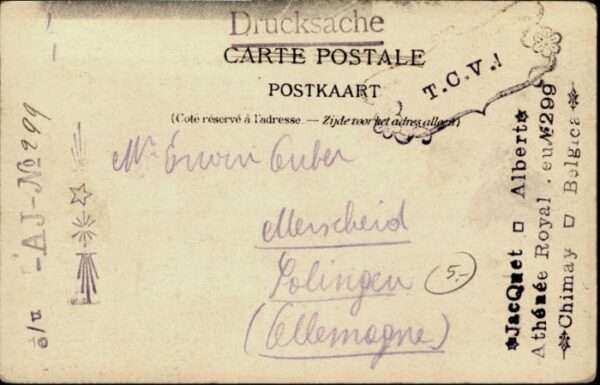 Drucksache
CARTE POSTALE
POSTKAART
(Coté réservé à l'adresse. — Zijde voor het adres alleen)
T.C.V.!
Mr. Erwin
Merscheid
Solingen
(Allemagne)
5.-
JacQuet □ Albert
Athénée Royal . eu № 299
Chimay □ Belgica
-AJ-№ 299